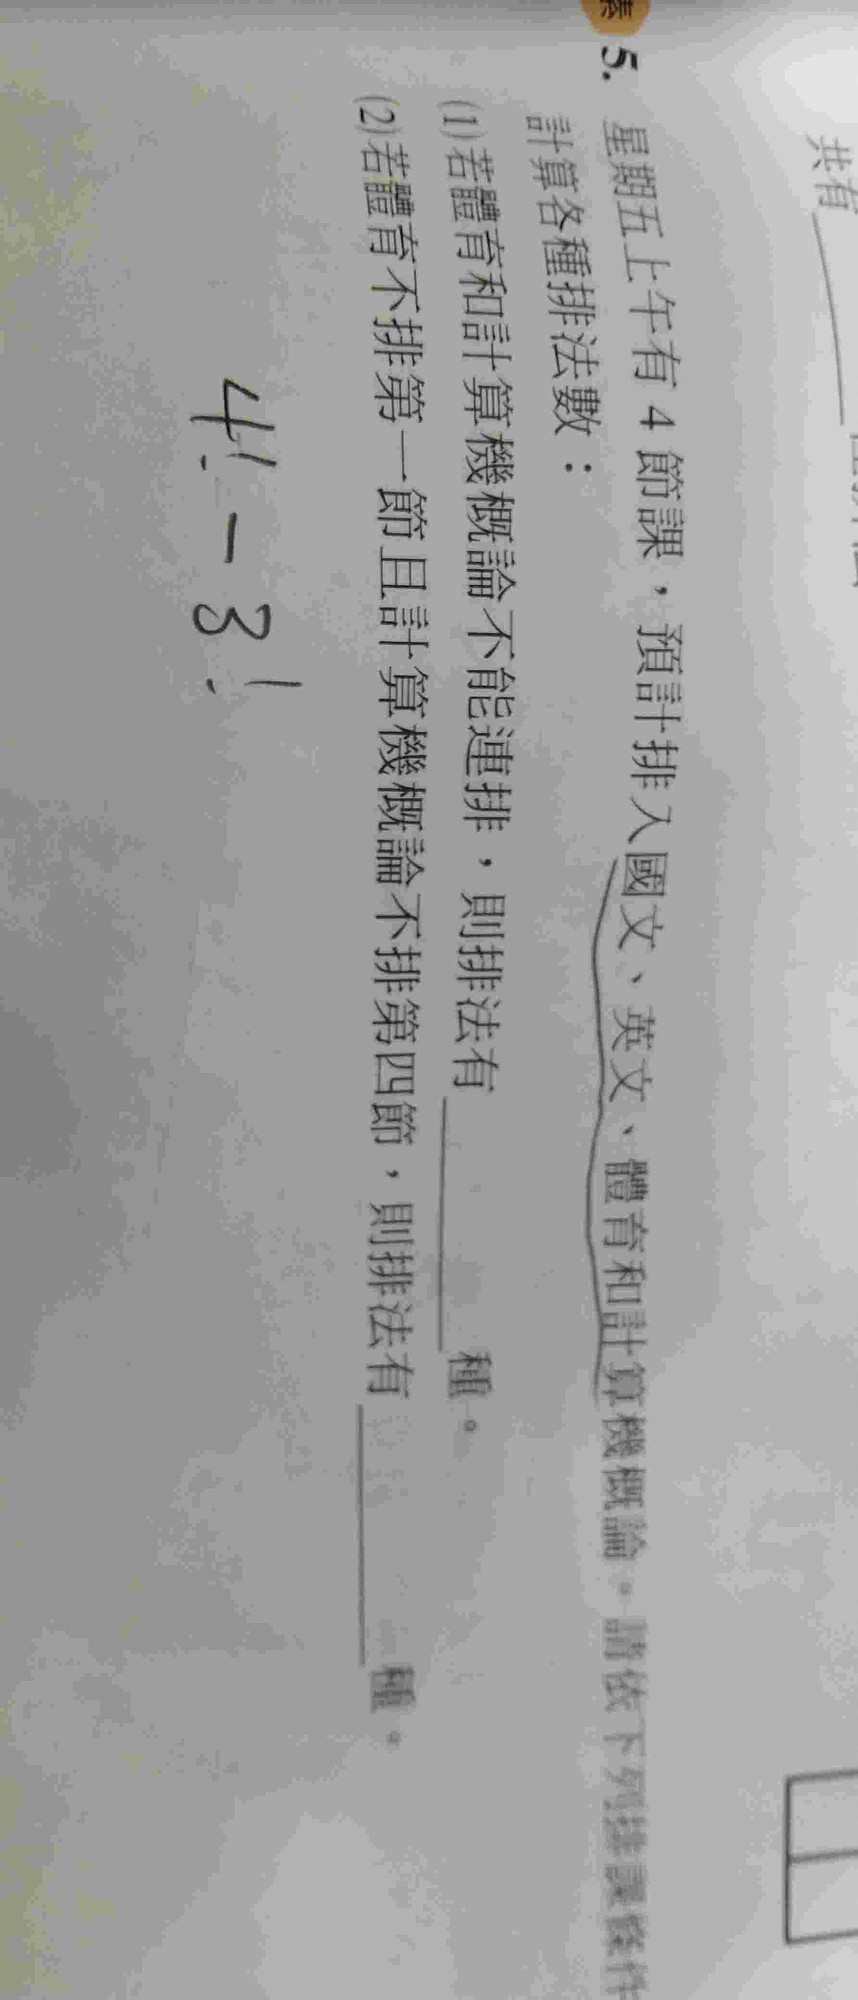 共有
5. 星期五上午有 4 節課，預計排入國文、英文、體育和計算機概論。請依下列排課條件
計算各種排法數：
(1)若體育和計算機概論不能連排，則排法有______種。
(2)若體育不排第一節且計算機概論不排第四節，則排法有______種。
4! - 3!